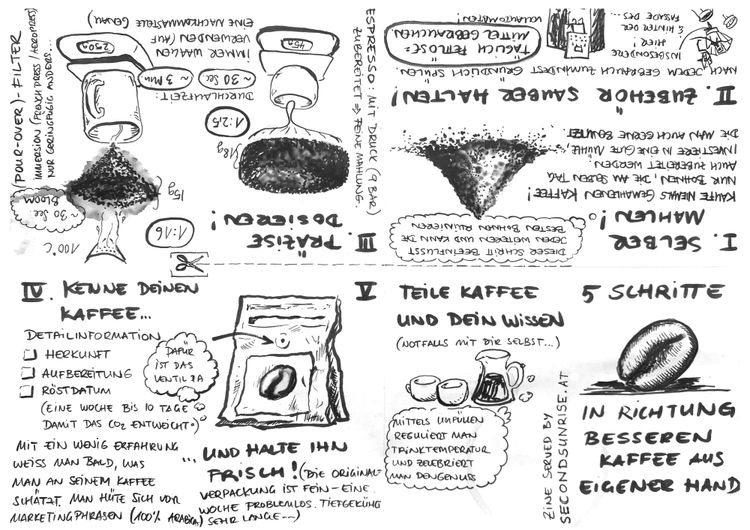 5 SCHRITTE
IN RICHTUNG
BESSEREN
KAFFEE AUS
EIGENER HAND
I. SELBER
MAHLEN!
DIESER SCHRITT BEEINFLUSST
JEDEN WEITEREN UND KANN DIE
BESTEN BOHNEN RUINIEREN
KAUFE NIEMALS GEMAHLENEN KAFFEE!
NUR BOHNEN, DIE AM SELBEN TAG
AUCH ZUBEREITET WERDEN.
INVESTIERE IN EINE GUTE MÜHLE,
DIE MAN AUCH GERNE BENUTZT
II. ZUBEHÖR SAUBER HALTEN!
NACH JEDEM GEBRAUCH ZUMINDEST GRÜNDLICH SPÜLEN.
INSBESONDERE
HIER!
& HINTER DER
FASSADE DES
VOLLAUTOMATEN!
TÄGLICH FETTLÖSE=
MITTEL GEBRAUCHEN
III. PRÄZISE
DOSIEREN!
ESPRESSO: MIT DRUCK (9 BAR)
ZUBEREITET ⇒ FEINE MAHLUNG.
18g
1:2,5
45g
DURCHLAUFZEIT:
~30 SEC
~3 MIN
IMMER WAAGEN
VERWENDEN (AUF
EINE NACHKOMMASTELLE GENAU)
(POUR-OVER)-FILTER
IMMERSION (FRENCH PRESS / AEROPRESS)
NUR GERINGFÜGIG ANDERS...
1:16
100°C
15g
~30 SEC
BLOOM
250g
IV. KENNE DEINEN
KAFFEE...
DETAILINFORMATION
HERKUNFT
AUFBEREITUNG
RÖSTDATUM
(EINE WOCHE BIS 10 TAGE
DAMIT DAS CO2 ENTWEICHT.)
DAFÜR
IST DAS
VENTIL DA
MIT EIN WENIG ERFAHRUNG
WEISS MAN BALD, WAS
MAN AN SEINEM KAFFEE
SCHÄTZT. MAN HÜTE SICH VOR
MARKETINGPHRASEN (100% ARABICA)
... UND HALTE IHN
FRISCH! (DIE ORIGINAL-
VERPACKUNG IST FEIN - EINE
WOCHE PROBLEMLOS. TIEFGEKÜHLT
SEHR LANGE...)
V TEILE KAFFEE
UND DEIN WISSEN
(NOTFALLS MIT DIR SELBST...)
MITTELS UMFÜLLEN
REGULIERT MAN
TRINKTEMPERATUR
UND ZELEBRIERT
MAN DEN GENUSS
ZINE SERVED BY
SECONDSUNRISE.AT